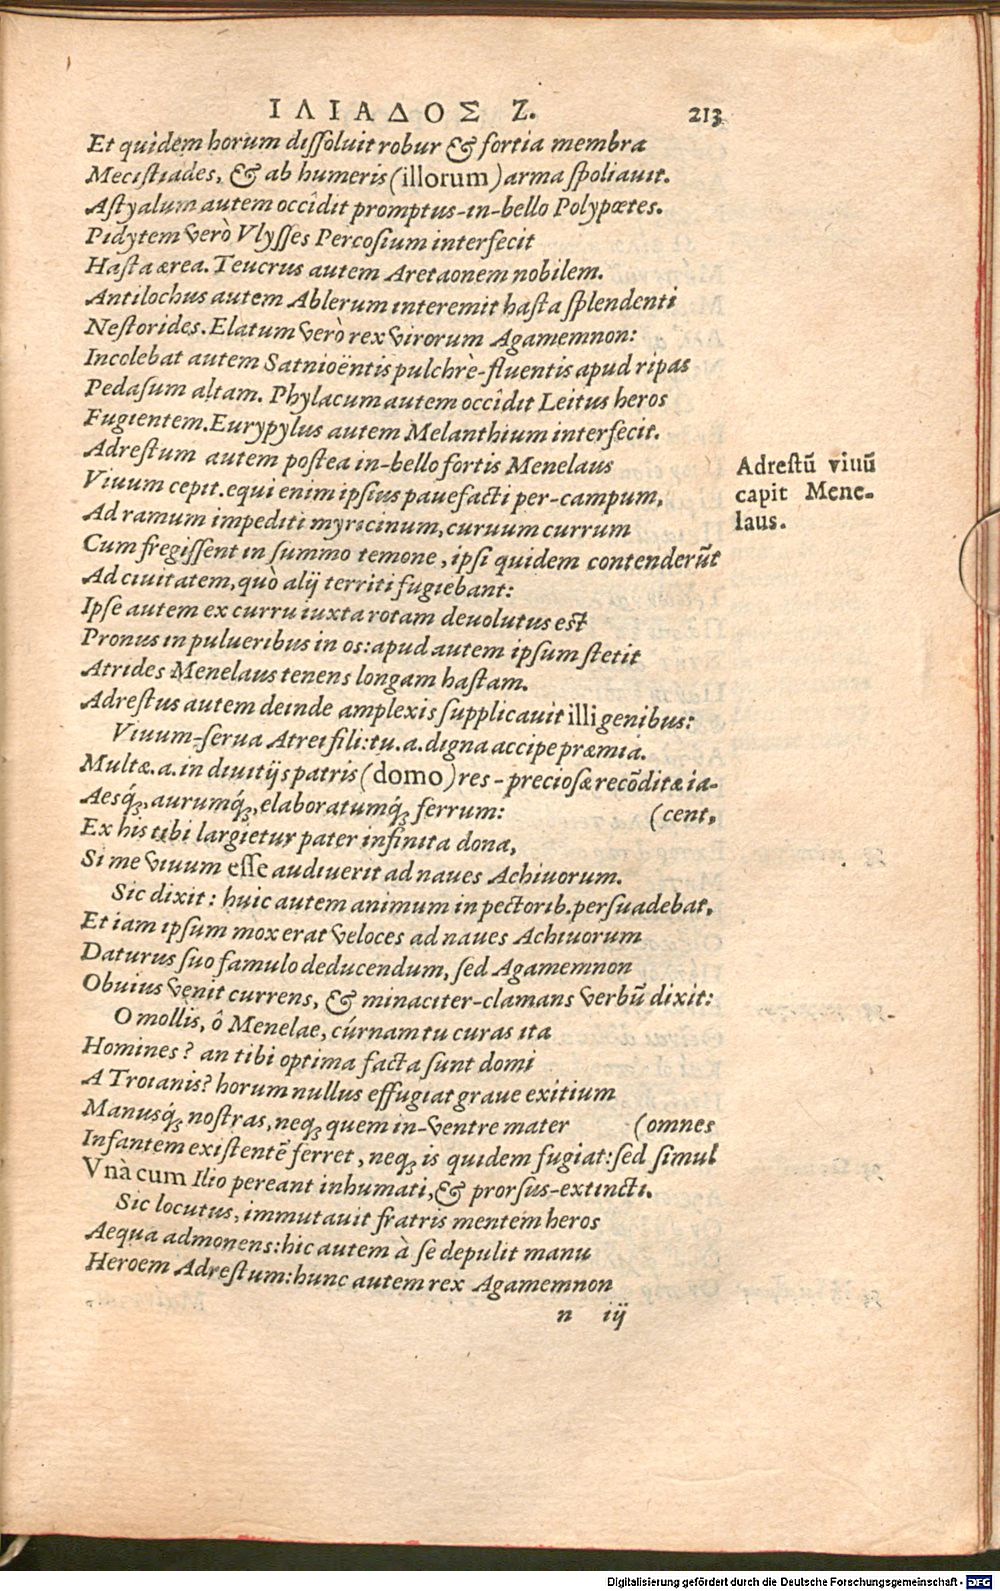 ΙΛΙΑΔΟΣ Ζ. 213
Et quidem horum dissoluit robur & fortia membra
Mecistiades, & ab humeris (illorum) arma spoliauit.
Astyalum autem occîdit promptus-in-bello Polypœtes.
Pidytem verò Vlysses Percosium interfecit
Hasta ærea. Teucrus autem Aretaonem nobilem.
Antilochus autem Ablerum interemit hasta splendenti
Nestorides. Elatum verò rex virorum Agamemnon:
Incolebat autem Satnioëntis pulchrè-fluentis apud ripas
Pedasum altam. Phylacum autem occîdit Leitus heros
Fugientem. Eurypylus autem Melanthium interfecit.
Adrestum autem postea in-bello fortis Menelaus
Viuum cepit. equi enim ipsius pauefacti per-campum,
Ad ramum impediti myricinum, curuum currum
Cum fregissent in summo temone, ipsi quidem contenderūt
Ad ciuitatem, quò alij territi fugiebant:
Ipse autem ex curru iuxta rotam deuolutus est
Pronus in pulueribus in os: apud autem ipsum stetit
Atrides Menelaus tenens longam hastam.
Adrestus autem deinde amplexis supplicauit illi genibus:
Viuum-serua Atrei fili: tu .a. digna accipe præmia.
Multæ .a. in diuitijs patris (domo) res-preciosæ recōditæ ia-
Aesq́;, aurumq́;, elaboratumq́; ferrum: (cent,
Ex his tibi largietur pater infinita dona,
Si me viuum esse audiuerit ad naues Achiuorum.
Sic dixit: huic autem animum in pectorib. persuadebat,
Et iam ipsum mox erat veloces ad naues Achiuorum
Daturus suo famulo deducendum, sed Agamemnon
Obuius venit currens, & minaciter-clamans verbū dixit:
O mollis, ô Menelae, cúrnam tu curas ita
Homines? an tibi optima facta sunt domi
A Troianis? horum nullus effugiat graue exitium
Manusq́; nostras, neq; quem in-ventre mater (omnes
Infantem existentē ferret, neq; is quidem fugiat: sed simul
Vnà cum Ilio pereant inhumati, & prorsus-extincti.
Sic locutus, immutauit fratris mentem heros
Aequa admonens: hic autem à se depulit manu
Heroem Adrestum: hunc autem rex Agamemnon
n iij
Adrestū viuū
capit Mene-
laus.
Digitalisierung gefördert durch die Deutsche Forschungsgemeinschaft - DFG